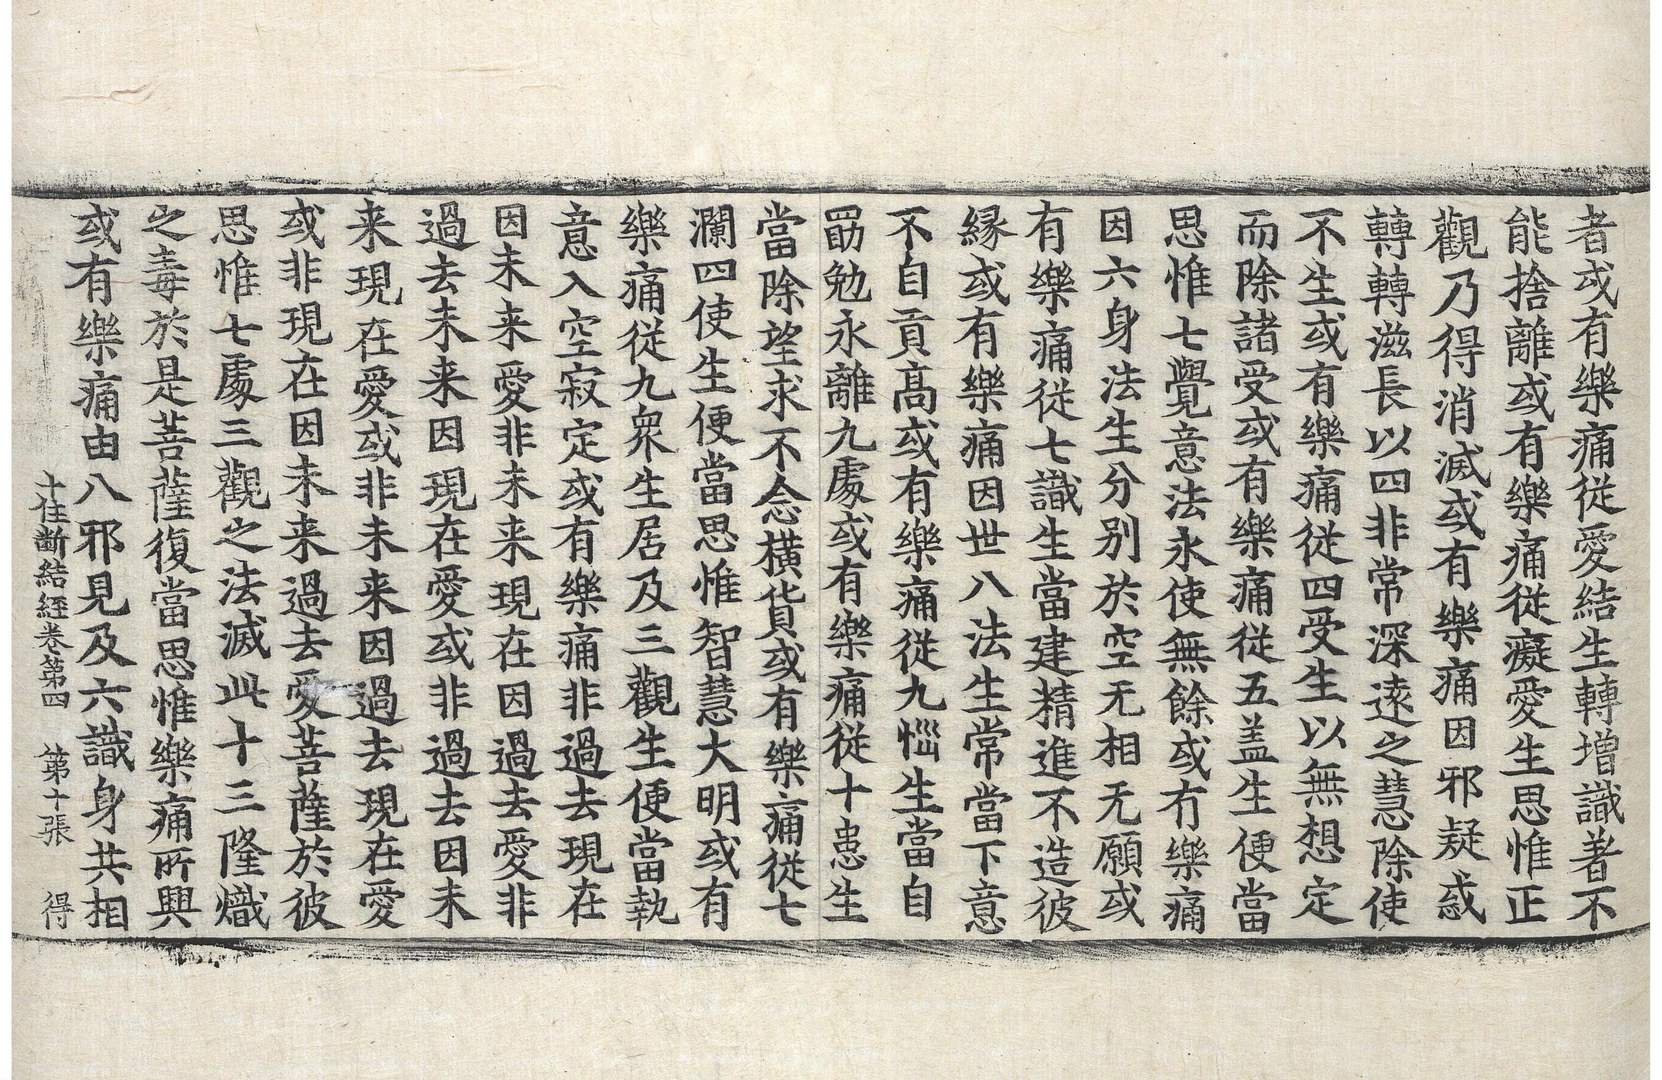 者或有樂痛從愛結生轉增識著不
能捨離或有樂痛從癡愛生思惟正
觀乃得消滅或有樂痛因邪疑惑
轉轉滋長以四非常深遠之慧除使
不生或有樂痛從四受生以無想定
而除諸受或有樂痛從五盖生便當
思惟七覺意法永使無餘或有樂痛
因六身法生分別於空无相无願或
有樂痛從七識生當建精進不造彼
緣或有樂痛因世八法生常當下意
不自貢高或有樂痛從九惱生當自
勖勉永離九處或有樂痛從十恚生
當除望求不念橫貨或有樂痛從七
瀾四使生便當思惟智慧大明或有
樂痛從九衆生居及三觀生便當執
意入空寂定或有樂痛非過去現在
因未来愛非未来現在因過去愛非
過去未来因現在愛或非過去因未
来現在愛或非未来因過去現在愛
或非現在因未来過去愛菩薩於彼
思惟七處三觀之法滅此十三隆熾
之毒於是菩薩復當思惟樂痛所興
或有樂痛由八邪見及六識身共相
十住斷結經卷第四　第十張　得